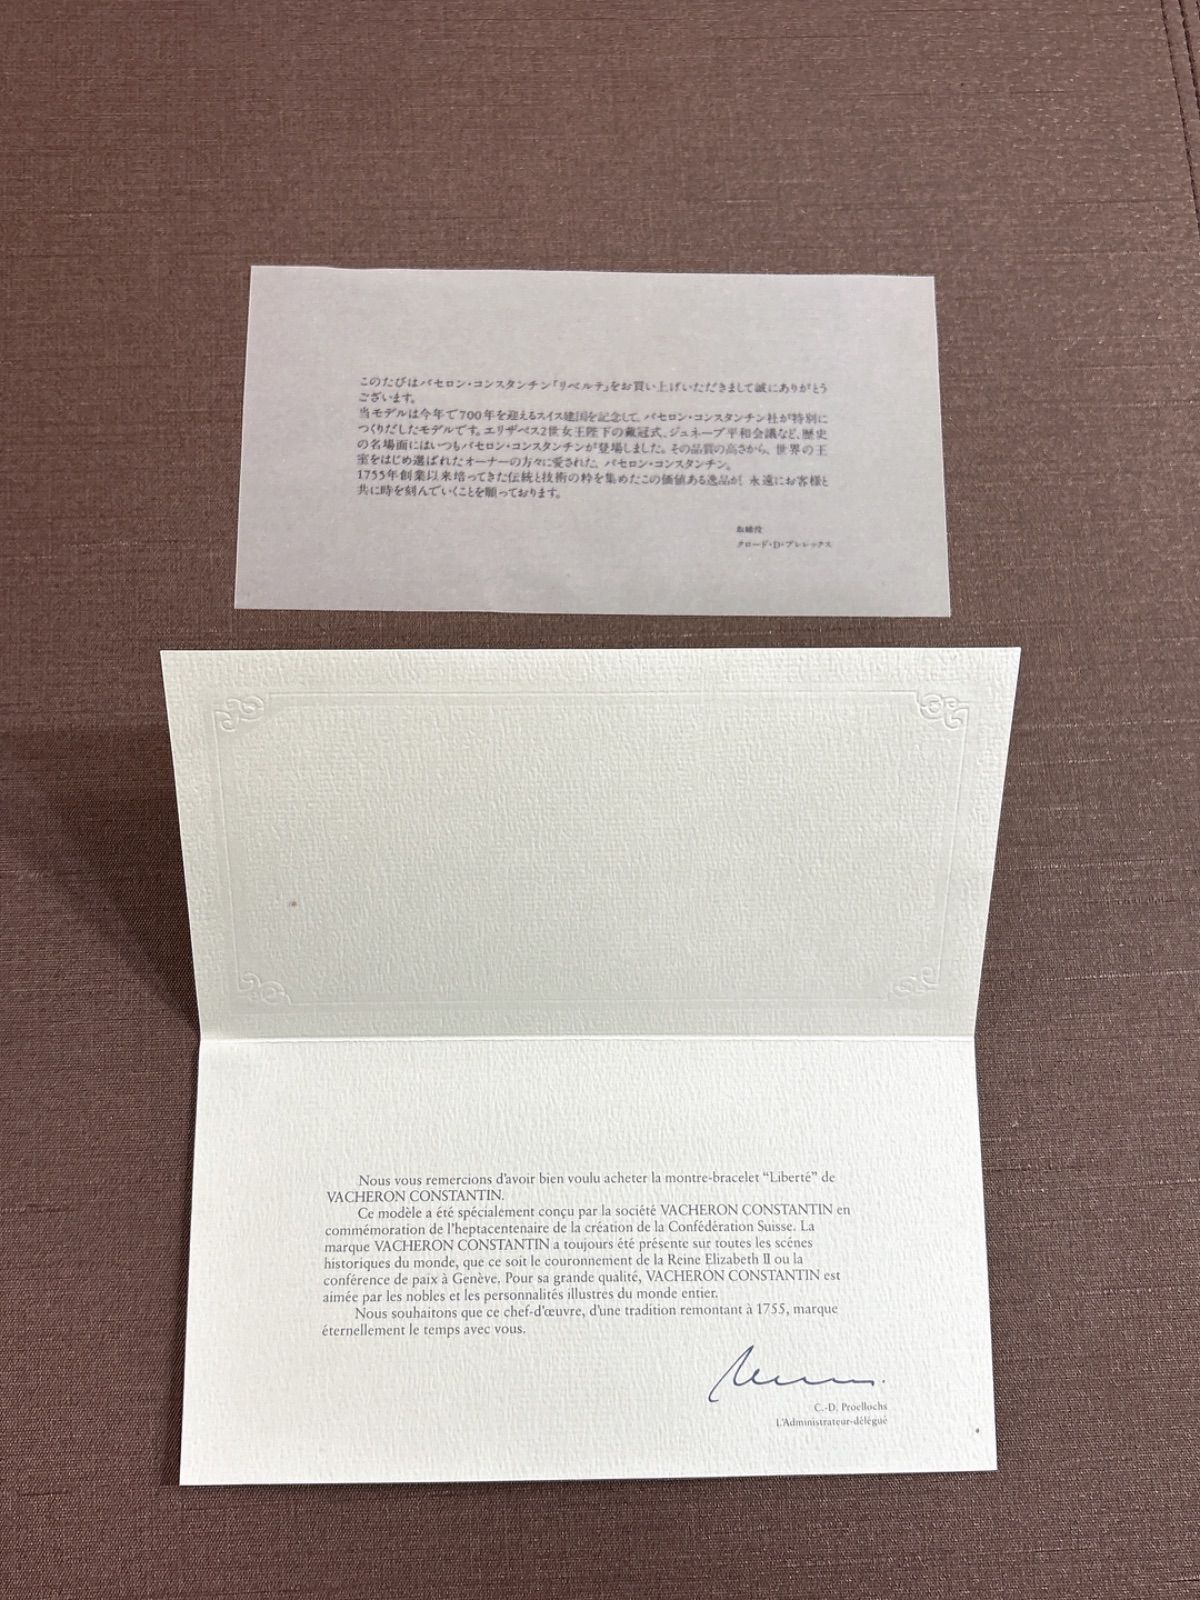 このたびはバセロン・コンスタンチン「リベルテ」をお買い上げいただきまして誠にありがとう
ございます。
当モデルは今年で700年を迎えるスイス建国を記念して、バセロン・コンスタンチン社が特別に
つくりだしたモデルです。エリザベス2世女王陛下の戴冠式、ジュネーブ平和会議など、歴史
の名場面にはいつもバセロン・コンスタンチンが登場しました。その品質の高さから、世界の王
室をはじめ選ばれたオーナーの方々に愛された、バセロン・コンスタンチン。
1755年創業以来培ってきた伝統と技術の粋を集めたこの価値ある逸品が、永遠にお客様と
共に時を刻んでいくことを願っております。
取締役
クロード・D・プレレックス
Nous vous remercions d'avoir bien voulu acheter la montre-bracelet “Liberté” de
VACHERON CONSTANTIN.
Ce modèle a été spécialement conçu par la société VACHERON CONSTANTIN en
commémoration de l'heptacentenaire de la création de la Confédération Suisse. La
marque VACHERON CONSTANTIN a toujours été présente sur toutes les scènes
historiques du monde, que ce soit le couronnement de la Reine Elizabeth II ou la
conférence de paix à Genève. Pour sa grande qualité, VACHERON CONSTANTIN est
aimée par les nobles et les personnalités illustres du monde entier.
Nous souhaitons que ce chef-d'œuvre, d'une tradition remontant à 1755, marque
éternellement le temps avec vous.
C.-D. Proellochs
L'Administrateur-délégué